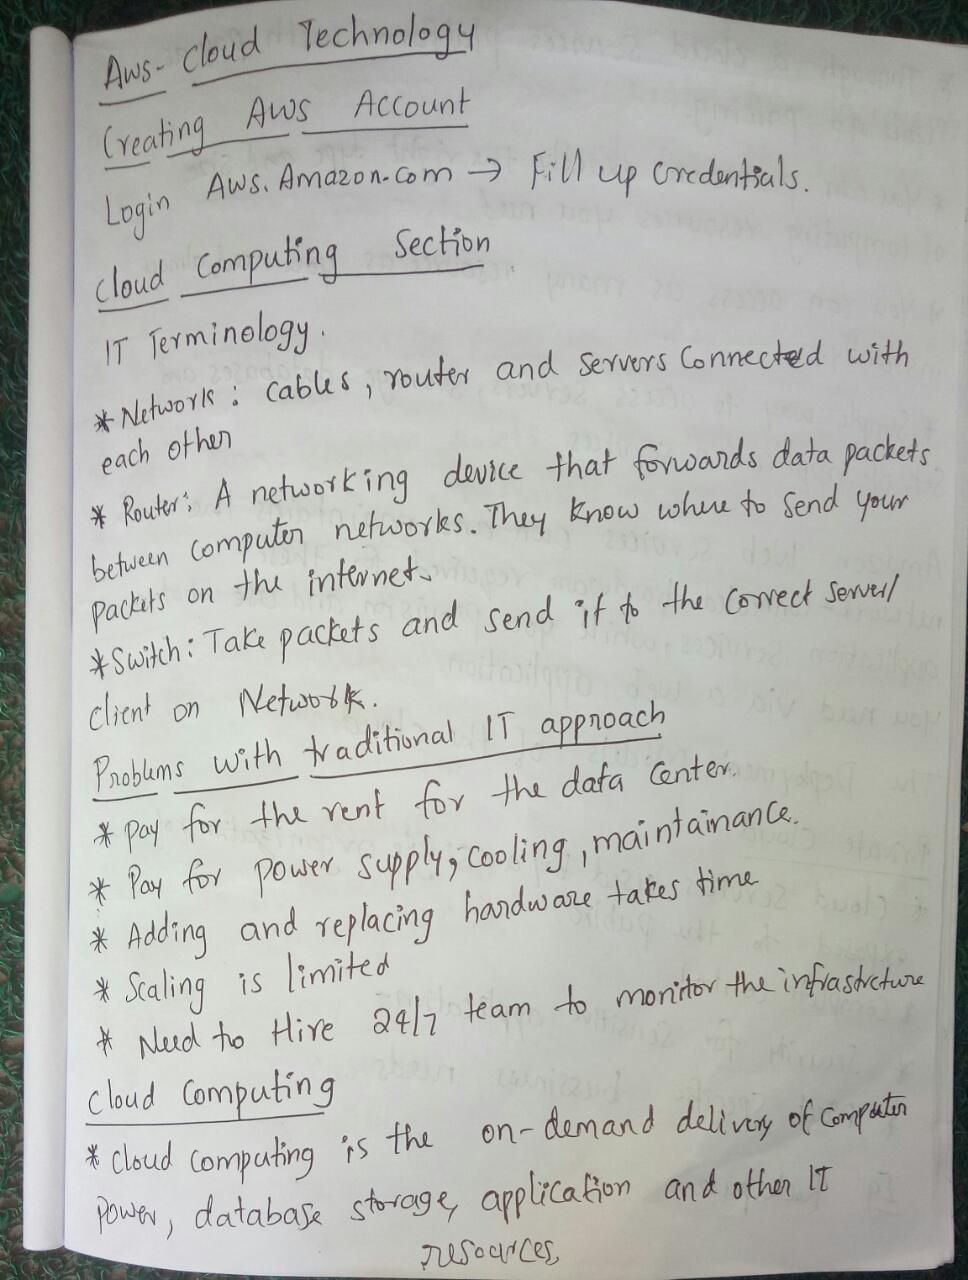 Aws- Cloud Technology
Creating Aws Account
Login Aws.Amazon.com → Fill up credentials.
Cloud Computing Section
IT Terminology.
* Network: Cables, router and Servers Connected with
each other
* Router: A networking device that forwards data packets
between computer networks. They know where to Send your
packets on the internet.
* Switch: Take packets and send it to the correct server/
client on Network.
Problems with traditional IT approach
* pay for the rent for the data Center.
* Pay for power supply, cooling, maintainance.
* Adding and replacing hardware takes time
* Scaling is limited
* Need to Hire 24/7 team to monitor the infrastrcture
Cloud Computing
* Cloud Computing is the on-demand delivery of Computer
Power, database storage, application and other IT
resources.